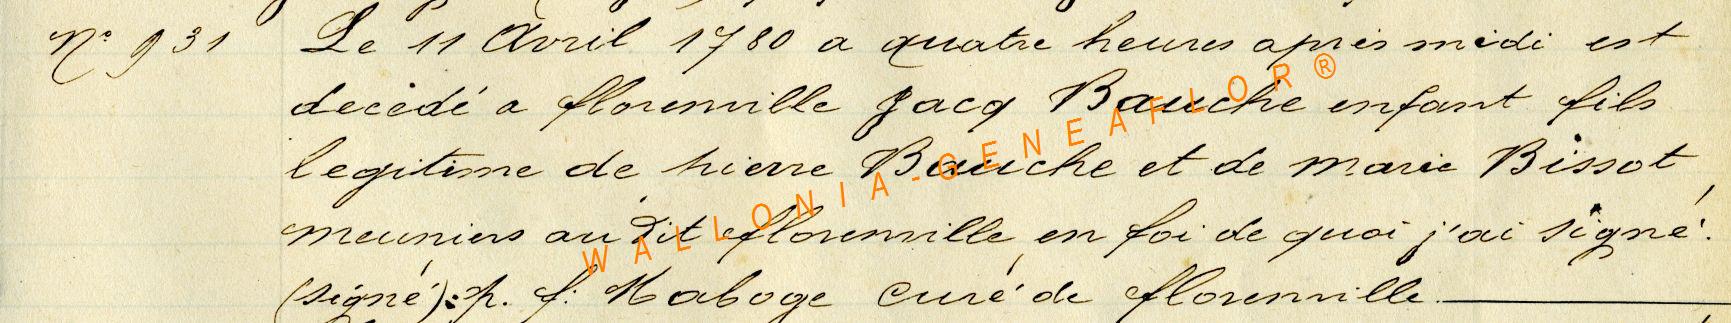 N° 931 Le 11 Avril 1780 a quatre heures après midi est
decèdé a florenville Jacq Bauche enfant fils
legitime de pierre Bauche et de marie Bissot,
meuniers au dit florenville, en foi de quoi j'ai signé.
(signé): p. f. Maboge curé de florenville.
WALLONIA-GENEAFLOR®